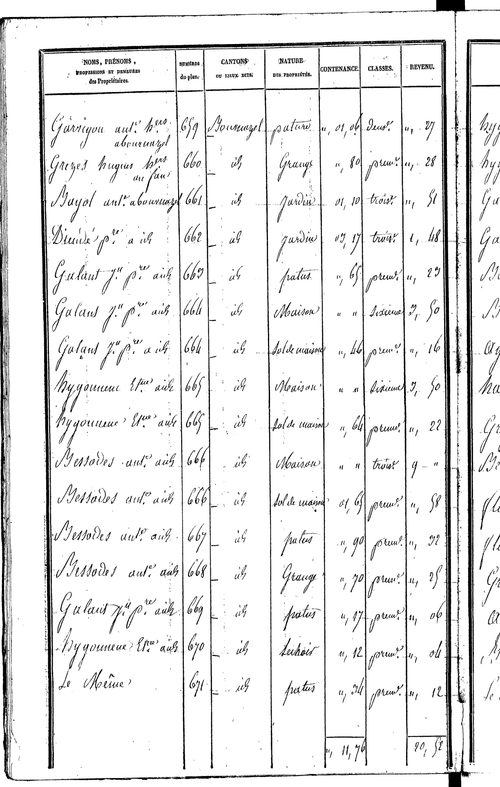 NOMS, PRÉNOMS, PROFESSIONS ET DEMEURES des Propriétaires. NUMÉROS du plan. CANTONS OU LIEUX DITS. NATURE DES PROPRIÉTÉS. CONTENANCE. CLASSES. REVENU.
Garrigou ant.e h.ers abournazel 659 Bournazel pature „, 01, 06 deux.e „, 27
Grezes hugues h.ers au fau 660 id. Grange „, 80 prem.e „, 28
Bayol ant.e abournazel 661 id. jardin 01, 10 trois.e „, 51
p.re a id. 662 id. jardin 03, 17 trois.e 1, 48
Galant J.n p.re a id. 663 id. patus „, 65 prem.e „, 23
Galant J.n p.re a id. 664 id. Maison „ „ sixieme 3, 50
Galant J.n p.re a id. 664 id. sol de maison „, 46 prem.e „, 16
hygonnene Et.ne a id. 665 id. Maison „ „ sixieme 3, 50
hygonnene Et.ne a id. 665 id. sol de maison „, 64 prem.e „, 22
Bessodes ant.e a id. 666 id. Maison „ „ trois.e 9 „
Bessodes ant.e a id. 666 id. sol de maison 01, 65 prem.e „, 58
Bessodes ant.e a id. 667 id. patus „, 90 prem.e „, 32
Bessodes ant.e a id. 668 id. Grange „, 70 prem.e „, 25
Galant J.n p.re a id. 669 id. patus „, 17 prem.e „, 06
hygonnene Et.ne a id. 670 id. Sechoir „, 12 prem.e „, 04
Le Même 671 id. patus „, 34 prem.e „, 12
„, 11, 76 20, 52